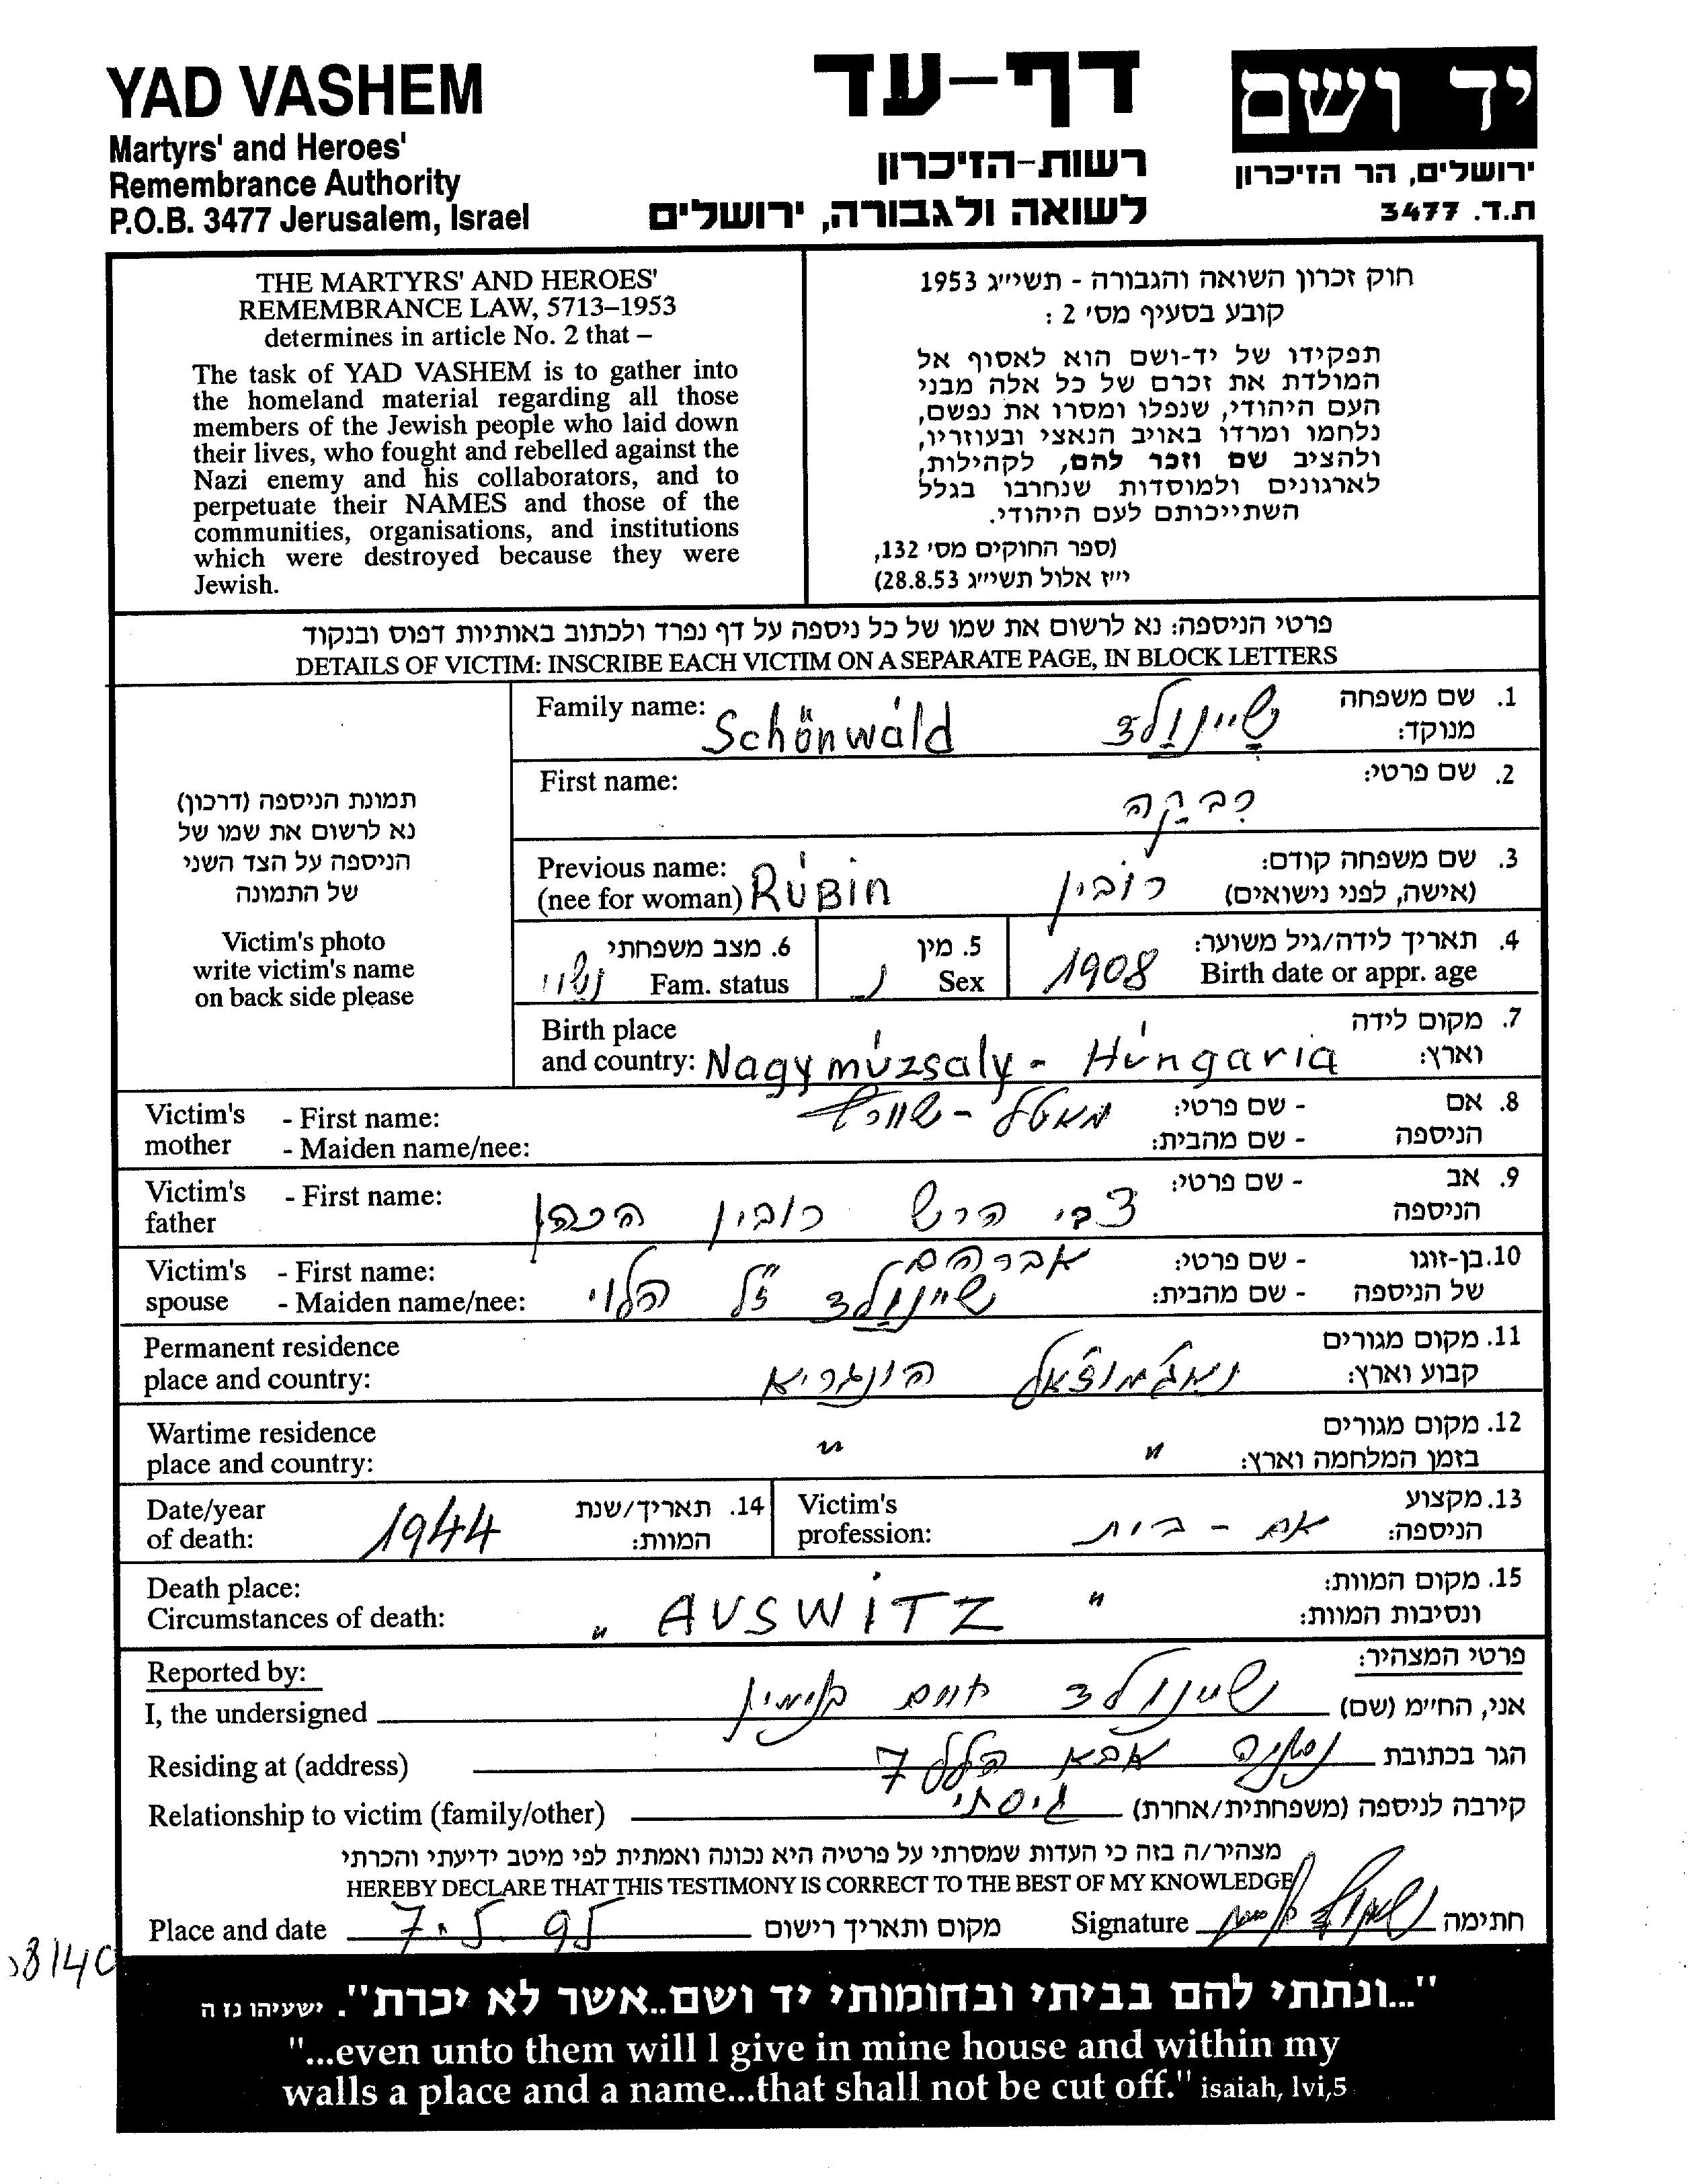 YAD VASHEM
Martyrs' and Heroes'
Remembrance Authority
P.O.B. 3477 Jerusalem, Israel
דף-עד
רשות-הזיכרון
לשואה ולגבורה, ירושלים
יד ושם
ירושלים, הר הזיכרון
ת.ד. 3477
THE MARTYRS' AND HEROES'
REMEMBRANCE LAW, 5713–1953
determines in article No. 2 that –
The task of YAD VASHEM is to gather into
the homeland material regarding all those
members of the Jewish people who laid down
their lives, who fought and rebelled against the
Nazi enemy and his collaborators, and to
perpetuate their NAMES and those of the
communities, organisations, and institutions
which were destroyed because they were
Jewish.
חוק זכרון השואה והגבורה - תשי״ג 1953
קובע בסעיף מס׳ 2 :
תפקידו של יד-ושם הוא לאסוף אל
המולדת את זכרם של כל אלה מבני
העם היהודי, שנפלו ומסרו את נפשם,
נלחמו ומרדו באויב הנאצי ובעוזריו,
ולהציב שם וזכר להם, לקהילות,
לארגונים ולמוסדות שנחרבו בגלל
השתייכותם לעם היהודי.
(ספר החוקים מס׳ 132,
י״ז אלול תשי״ג 28.8.53)
פרטי הניספה: נא לרשום את שמו של כל ניספה על דף נפרד ולכתוב באותיות דפוס ובנקוד
DETAILS OF VICTIM: INSCRIBE EACH VICTIM ON A SEPARATE PAGE, IN BLOCK LETTERS
תמונת הניספה (דרכון)
נא לרשום את שמו של
הניספה על הצד השני
של התמונה
Victim's photo
write victim's name
on back side please
Family name: Schönwald שיינולד 1. שם משפחה
מנוקד:
First name: רבקה 2. שם פרטי:
Previous name: 3. שם משפחה קודם:
(nee for woman) RUBin רובין (אישה, לפני נישואים)
6. מצב משפחתי 5. מין 4. תאריך לידה/גיל משוער:
נשוי Fam. status נ Sex 1908 Birth date or appr. age
Birth place 7. מקום לידה
and country: Nagymuzsaly - Hungaria וארץ:
Victim's - First name: - שם פרטי: 8. אם
mother - Maiden name/nee: מאטל - שוורץ - שם מהבית: הניספה
Victim's - First name: - שם פרטי: 9. אב
father צבי הרש רובין הכהן הניספה
Victim's - First name: אברהם - שם פרטי: 10. בן-זוגו
spouse - Maiden name/nee: שיינולד ז״ל הלוי - שם מהבית: של הניספה
Permanent residence 11. מקום מגורים
place and country: הונגריא קבוע וארץ:
Wartime residence 12. מקום מגורים
place and country: " " בזמן המלחמה וארץ:
Date/year 14. תאריך/שנת
of death: 1944 המוות:
Victim's 13. מקצוע
profession: אם - בית הניספה:
Death place: 15. מקום המוות:
Circumstances of death: " AUSWiTZ " ונסיבות המוות:
Reported by: פרטי המצהיר:
I, the undersigned שיינולד חיים בנימין אני, החי״מ (שם)
Residing at (address) נתניה אבא הלל 7 הגר בכתובת
Relationship to victim (family/other) גיסתי קירבה לניספה (משפחתית/אחרת)
מצהיר/ה בזה כי העדות שמסרתי על פרטיה היא נכונה ואמתית לפי מיטב ידיעתי והכרתי
HEREBY DECLARE THAT THIS TESTIMONY IS CORRECT TO THE BEST OF MY KNOWLEDGE
Place and date 7.5.95 מקום ותאריך רישום Signature חתימה
"...ונתתי להם בביתי ובחומותי יד ושם..אשר לא יכרת". ישעיהו נז ה
"...even unto them will I give in mine house and within my
walls a place and a name...that shall not be cut off." isaiah, lvi,5